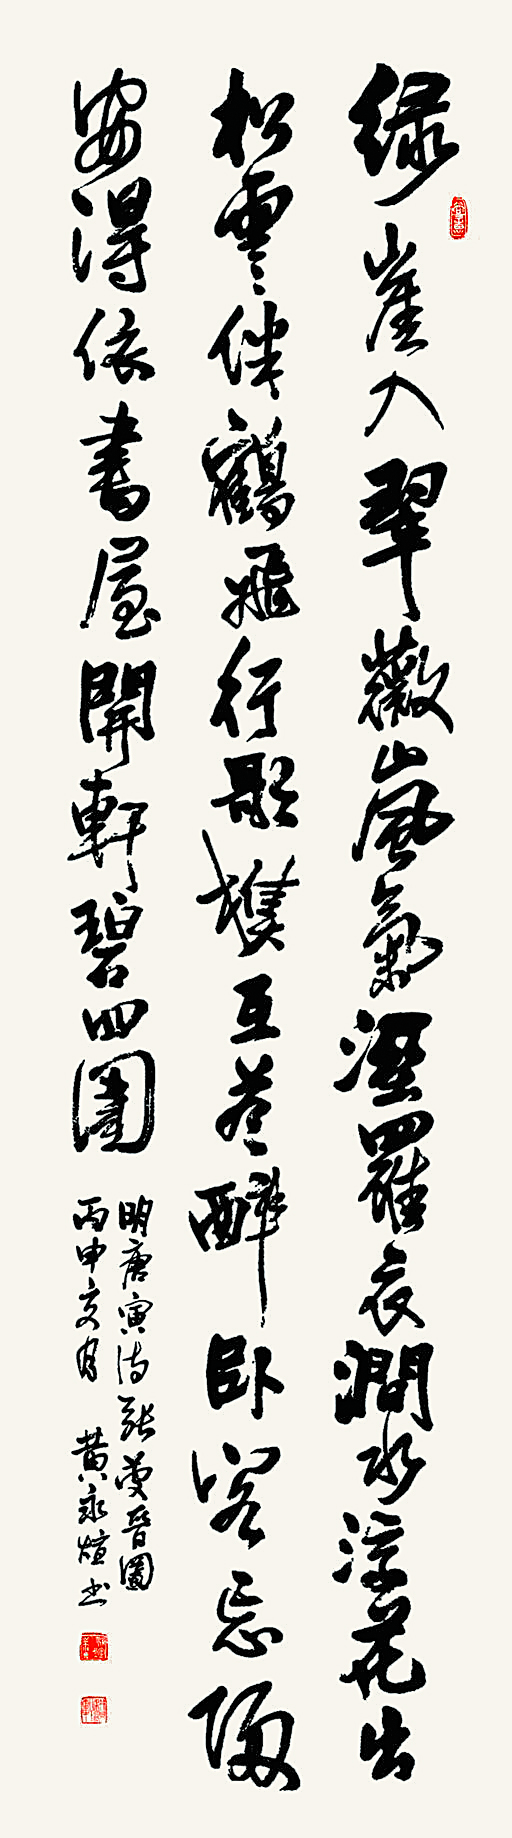 绿崖入翠薇嵐氣溼羅衣澗水浮花出
松雲伴鶴飛行歌樵互荅醉卧客忘歸
安得依書屋開軒碧四圍
明唐寅诗張夢晉圖
丙申夏月 黄永煊书